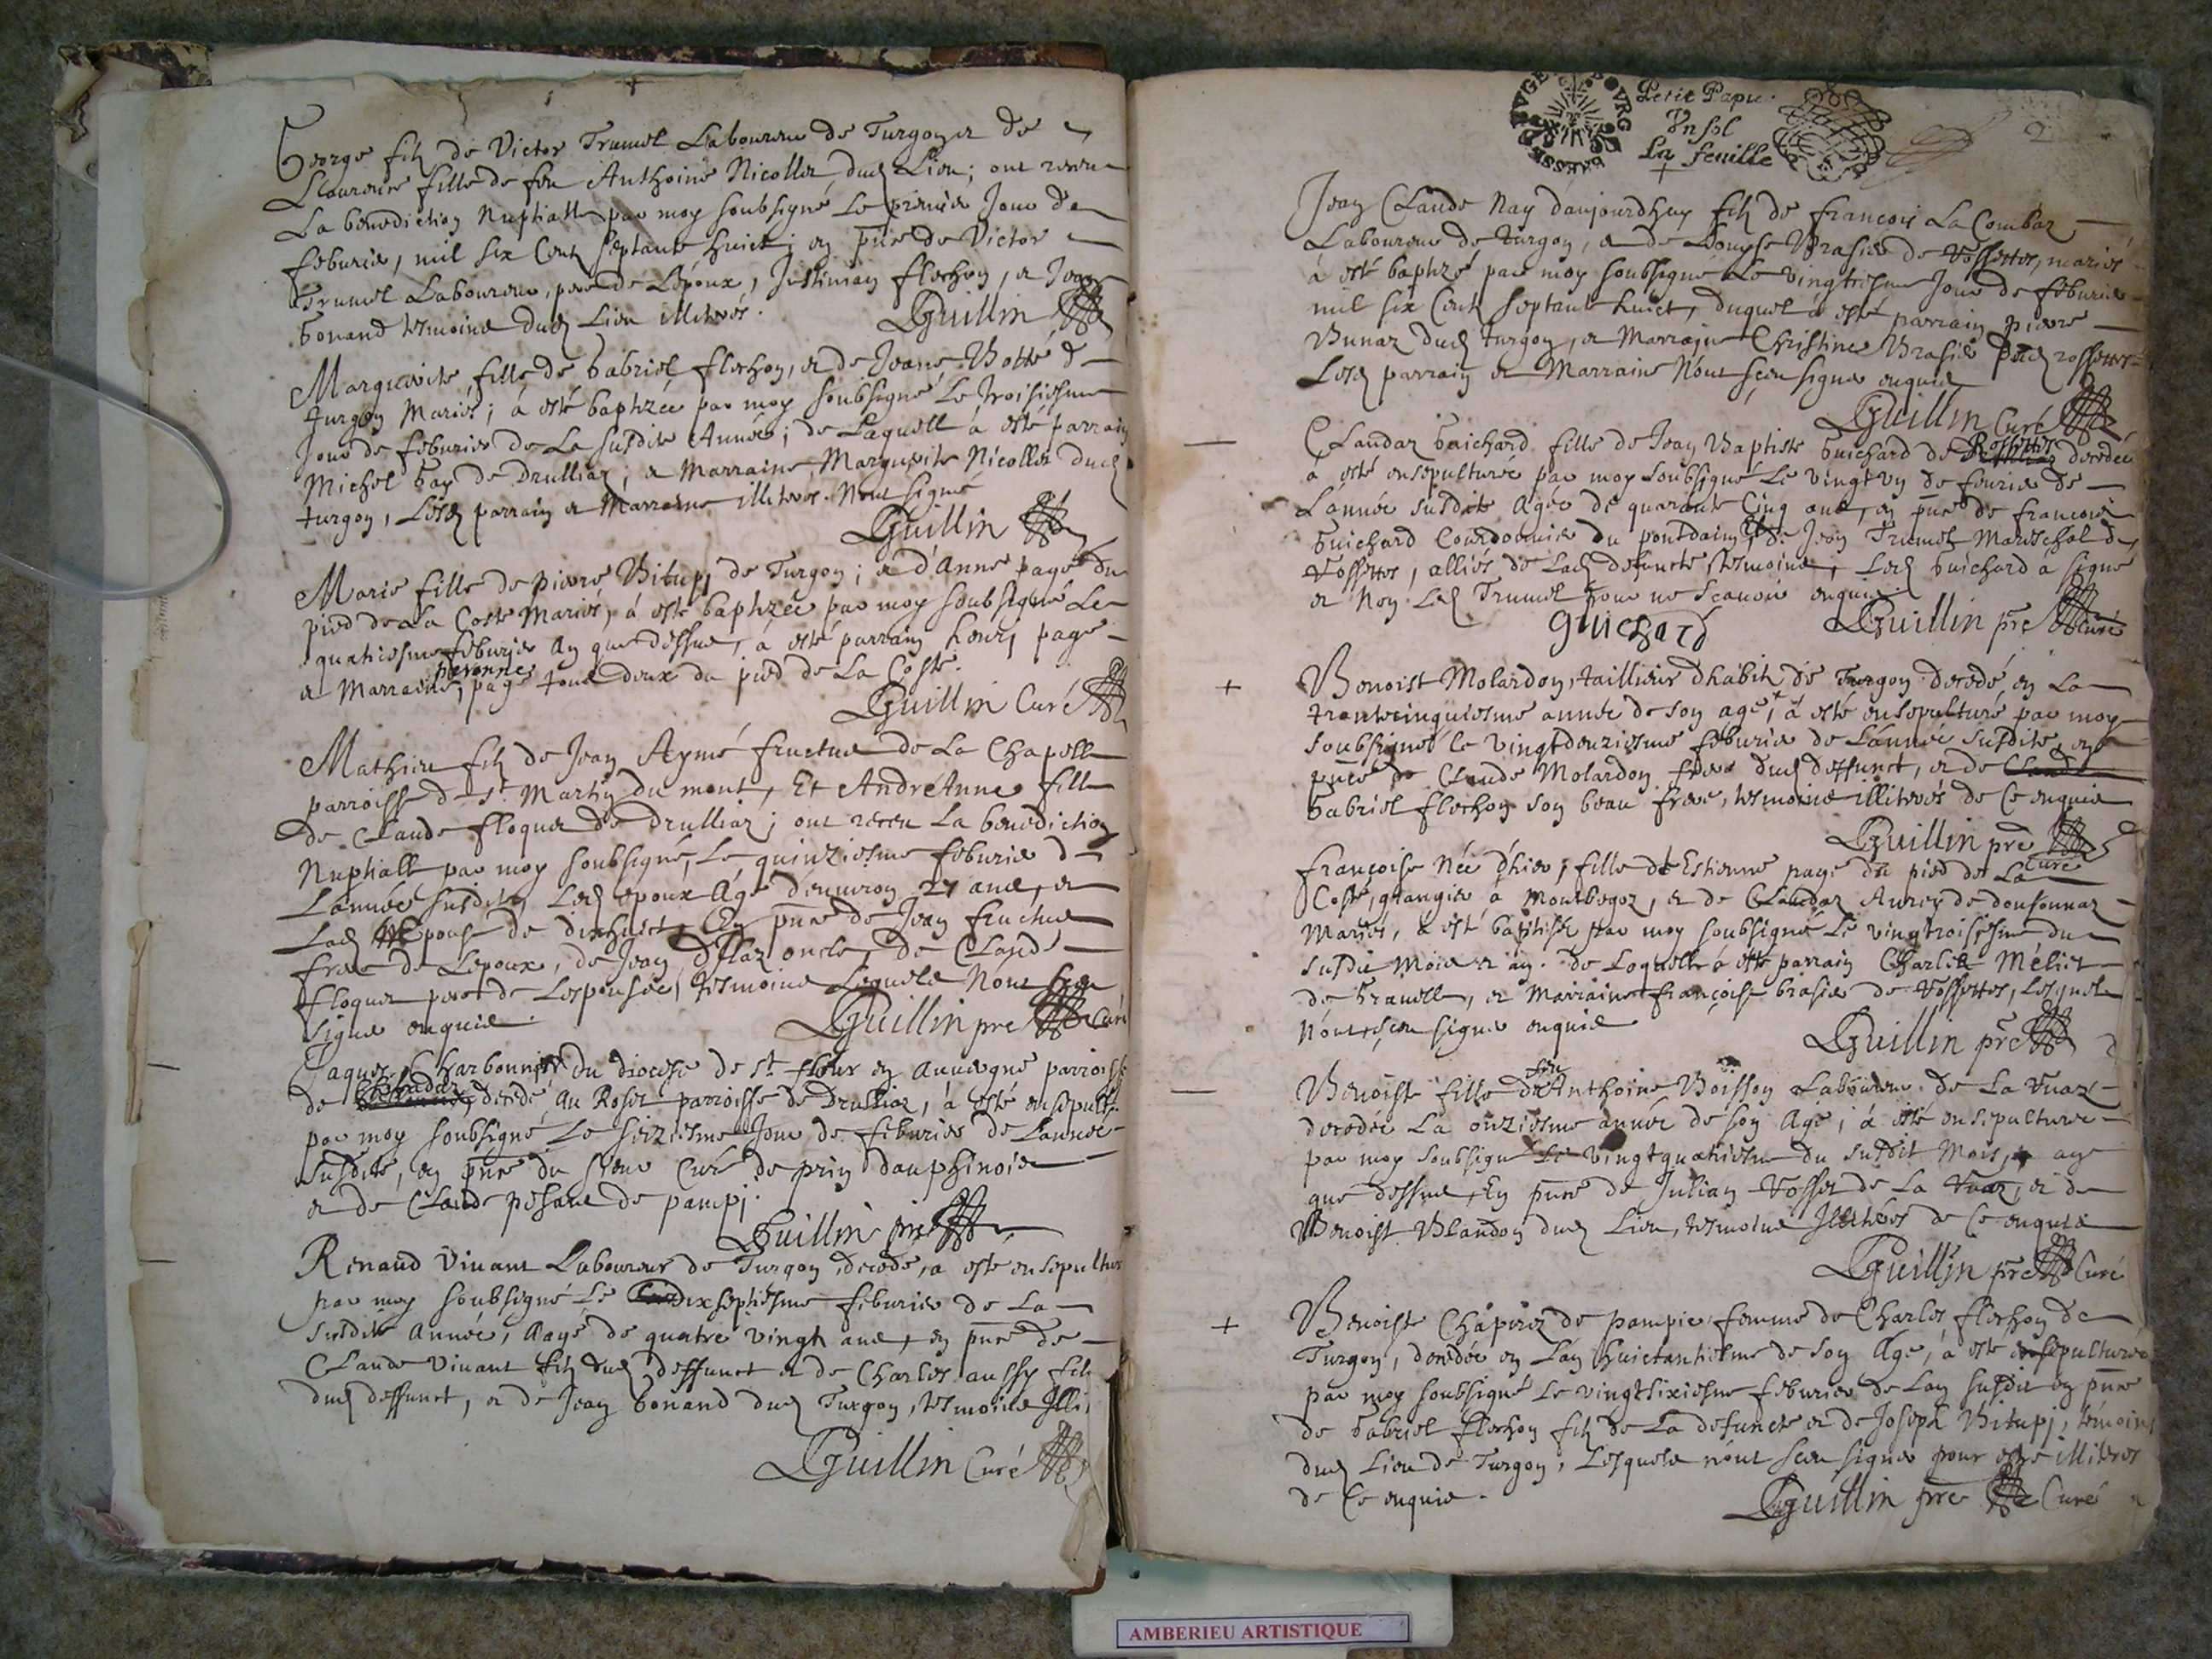 George filz de Victor Trumel Laboureur de Turgon et de
Laurence fille de feu Anthoine Nicollet dud Lieu; ont receu
La benediction Nuptialle par moy soubsigné Le premier Jour de
feburier, mil six Cent septante huict; en pñce de Victor
Trumel Laboureur, pere de L'époux, Justinian flechon, et Jean
bonand tesmoins dud Lieu illiterés.
Guillin
Marguerite fille de Gabriel flechon, et de Jeane Botté de
turgon Mariés; a esté baptizée par moy soubsigné Le troisiesme
Jour de feburier de La susdite Année; de Laquelle a esté parrain
Michel bay de Drulliaz; et Marraine Marguerite Nicollet dud
turgon, Lesd parrain et Marraine illiterés. N'ont signé
Guillin
Marie fille de pierre Bitupj de Turgon; et d'Anne page du
pied de La Coste Mariés, a esté baptizée par moy soubsigné Le
quatriesme feburier An que dessus, a esté parrain henrj page
peronne
et Marraine page tous deux du pied de La Coste.
Guillin Curé
Mathieu filz de Jean Aymé fructus de La Chapelle
parroisse de st Martin du mont, Et AndréAnne fille
de Claude floquet de Drulliaz; ont receu La benediction
Nuptialle par moy soubsigné, Le quinziesme feburier de
L'année susdite, Led epoux Agé d'enuiron 27 ans, et
Lad Epouse de dixhuict, En pñce de Jean fructus
frere de L'epoux, de Jean oncle, de Claude
floquet pere de L'espousée, tesmoins Lesquels N'ont sceu
signer enquis.
Guillin pre Curé
Jaques Charbonnier du diocese de st flour en Auuergne parroisse
de decedé Au Roset parroisse de Drulliaz, a esté ensepulturé
par moy soubsigné Le seiziesme Jour de feburier de L'année
susdite, en pñce du sieur Curé de prin dauphinois
et de Claude pesant de pampj.
Guillin pre
Renaud Viuant Laboureur de Turgon, decedé, a esté ensepulturé
par moy soubsigné Le dixseptiesme feburier de La
susdite année, Aagé de quatre vingt ans, en pñce de
Claude viuant filz dud deffunct et de Charles aussy filz
dud deffunct, et de Jean bonand dud Turgon, tesmoins Illi
Guillin Curé
BOURG
Petit Papier
Vn sol
La feuille
2
Jean Claude Nay d'aujourdhuy filz de francois La Combaz
Laboureur de turgon, et de Louyse Brasier de Rossettes, mariés
a esté baptizé par moy soubsigné Le vingtiesme Jour de feburier
mil six Cent septante huict, duquel a esté parrain pierre
Bunaz dud turgon, et Marraine Christine Brasier dud rossettes
Lesd parrain et Marraine N'ont sceu signer enquis
Guillin Curé
Rossettes
Claudaz Guichard fille de Jean Baptiste Guichard de decedée
a esté ensepulturée par moy soubsigné Le vingt vn de feurier de
L'année susdite Agée de quarante Cinq ans, en pñce de francois
Guichard Courdonnier du pontdains, et de Jean Trumel Mareschal de
Rossettes, alliés de Lad defuncte, tesmoins, Led Guichard a signé
et Non Led Trumel pour ne Scauoir enquis.
Guichard
Guillin pre Curé
Benoist Molardon, taillieur d'habitz de Turgon decedé en La
trentecinquiesme année de son age, a esté ensepulturé par moy
soubsigné le vingtdeuziesme feburier de L'année susdite, en
pñce de Claude Molardon frere dud deffunct, et de
Gabriel flechon son beau frere, tesmoins illiterés de Ce enquis
Guillin pre
Curé
françoise Née d'hier, fille de Estienne page du pied de La
Coste, grangier a Montbegoz, et de Claudaz Aurey de dousonnaz
Mariés, a esté baptisée par moy soubsigné Le vingtroisiesme du
susdit Mois et an. de Loquelle a esté parrain Charles Meliet
de Grauelle, et Marraine françoise brasier de Rossettes, Lesquels
N'ont sceu signer enquis
Guillin pre
feu
Benoiste fille de Anthoine Boisson Laboureur de La Ruaz
decedée La onziesme année de son Age; a esté ensepulturée
par moy soubsigné Le vingtquatriesme du susdit Mois, et an
que dessus, En pñce de Julian Rosset de La Ruaz, et de
Benoist Blandon dud Lieu, tesmoins Illiterés de Ce enquis
Guillin pre Curé
Benoiste Chapiroz de pampie femme de Charles flechon de
Turgon, decedée en L'an huictantiesme de son Age, a esté ensepulturée
par moy soubsigné Le vingtsixiesme feburier de L'an susdit en pñce
de Gabriel flechon filz de La defuncte et de Joseph Bitupj, témoins
dud Lieu de Turgon, Lesquels n'ont sceu signer pour estre illiterés
de Ce enquis.
Guillin pre Curé
AMBERIEU ARTISTIQUE